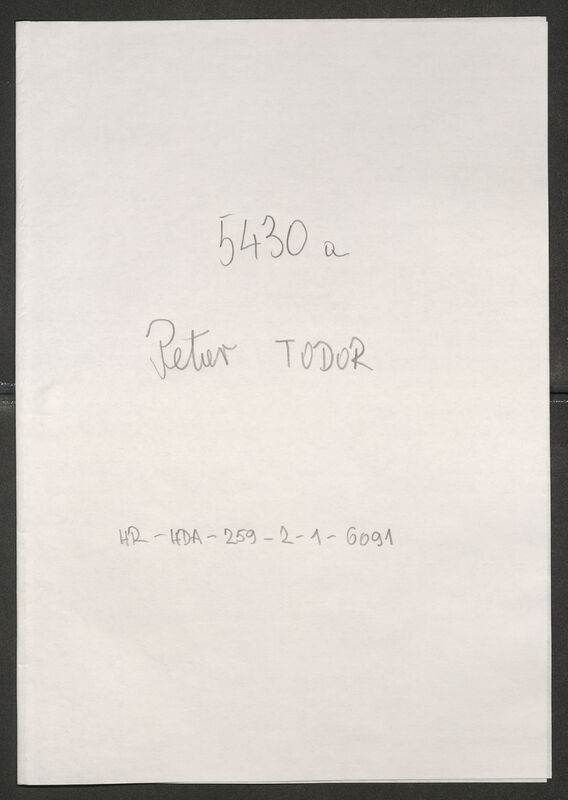 5430 a
Petar TODOR
HR-HDA-259-2-1-6091